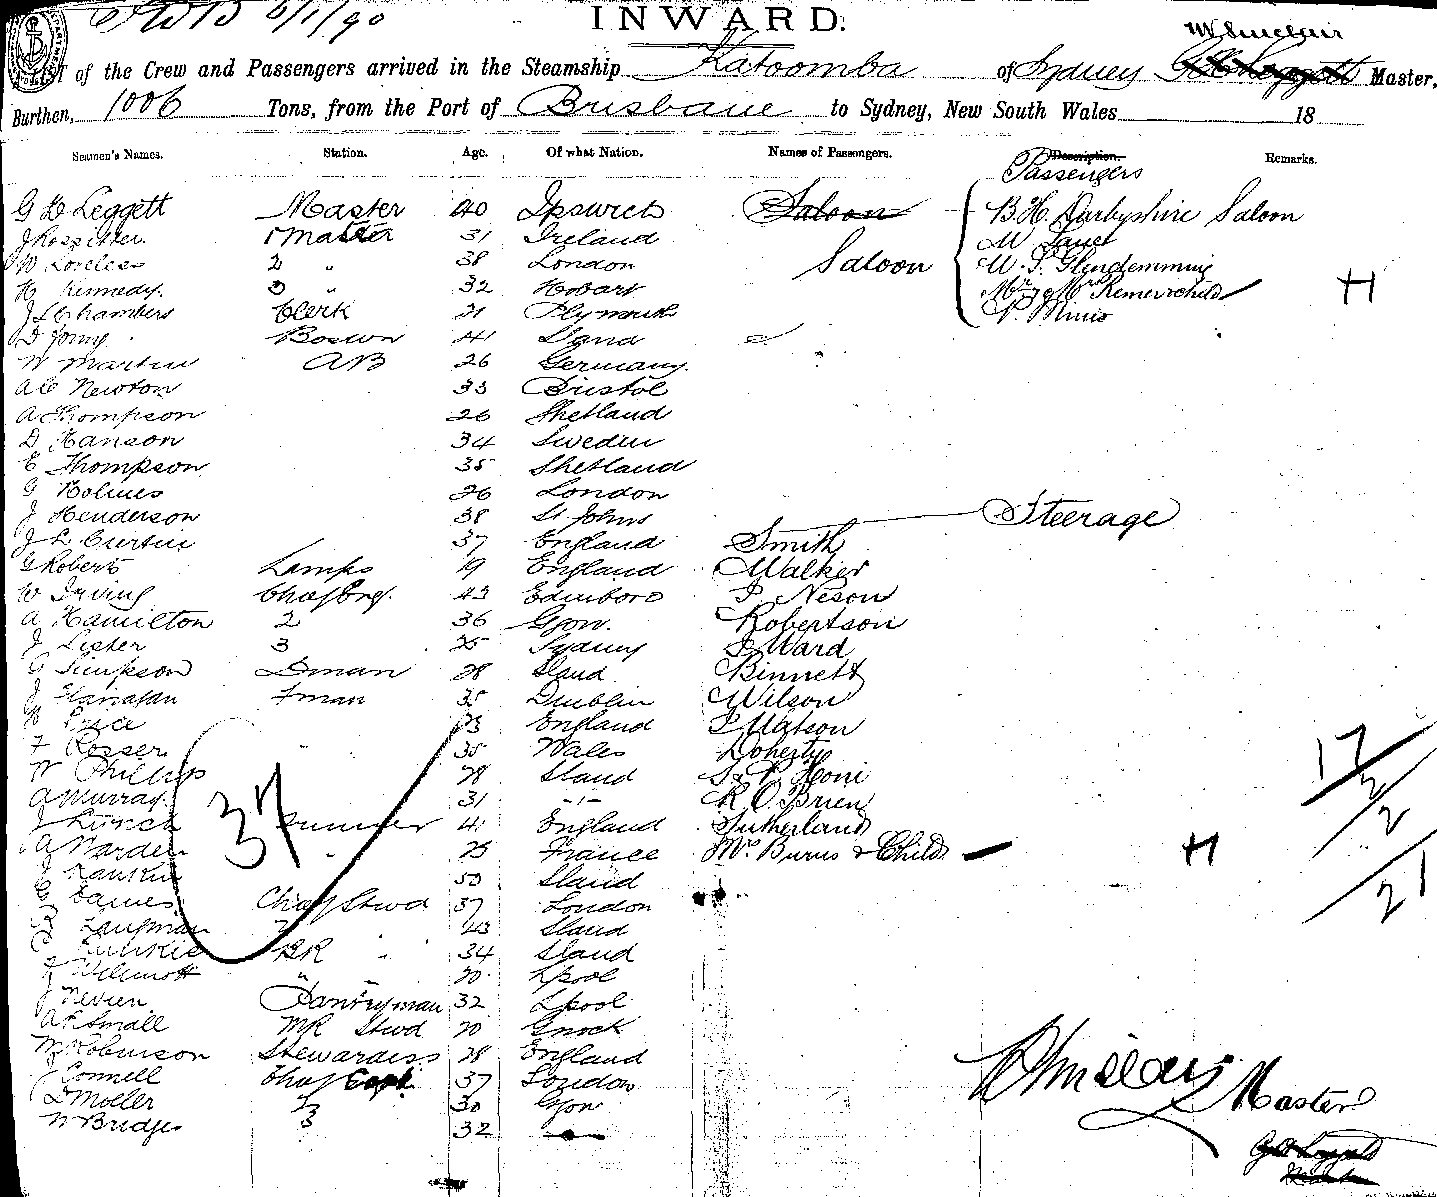 6/1/90
INWARD.
W Sinclair
LIST of the Crew and Passengers arrived in the Steamship Katoomba of Sydney Master,
Burthen, 1006 Tons, from the Port of Brisbane to Sydney, New South Wales 18
Seamen's Names. Station. Age. Of what Nation. Names of Passengers. Description. Remarks.
Passengers
G D Leggett Master 40 Ipswich Saloon B.H. Darbyshire Saloon
J Rossitter 1 Mate 31 Ireland
W Loveless 2 " 38 London Saloon W. S. Glendemming
H Kennedy. 3 " 32 Hobart Mr & Mrs
J L Chambers Clerk 21 Plymouth
D Bosun 41 Sland
W Martin AB 26 Germany.
A C Newton 33 Bristol
A Thompson 26 Shetland
D Hanson 34 Sweden
E Thompson 35 Shetland
G Holmes 26 London
J Henderson 38 St Johns Steerage
J L Curtin 37 England Smith
G Roberts Lamps 19 England Walker
W Irving Chief Eng. 43 Edinboro P. Neson
A Hamilton 2 36 Gow. Robertson
J Lister 3 25 Sydney Ward
G Simpson Dman 28 Sland Binnett
J Flanagan Fman 35 Dublin Wilson
Price 23 England Watson
F Rosser 35 Wales Doherty
W Phillips 28 Sland
A Murray. 31 -"- R. O'Brien
J Lynch 41 England Sutherland
A Warden " 25 France Mrs Burns & Child H
J Rankin 50 Sland
G James Chief Stwd 37 London
Langman 2 43 Sland
Runkie BR " 34 Sland
Wilmott " " 20 Lpool
J Neven Pantryman 32 Lpool
A F Small MR Stwd 20 Gnock
M Robinson Stewardess 28 England
J Connell Chief Cook 37 London
D Moller 2 30 Gow
W Bridges 3 32
37
H
17
2
2
21
Master